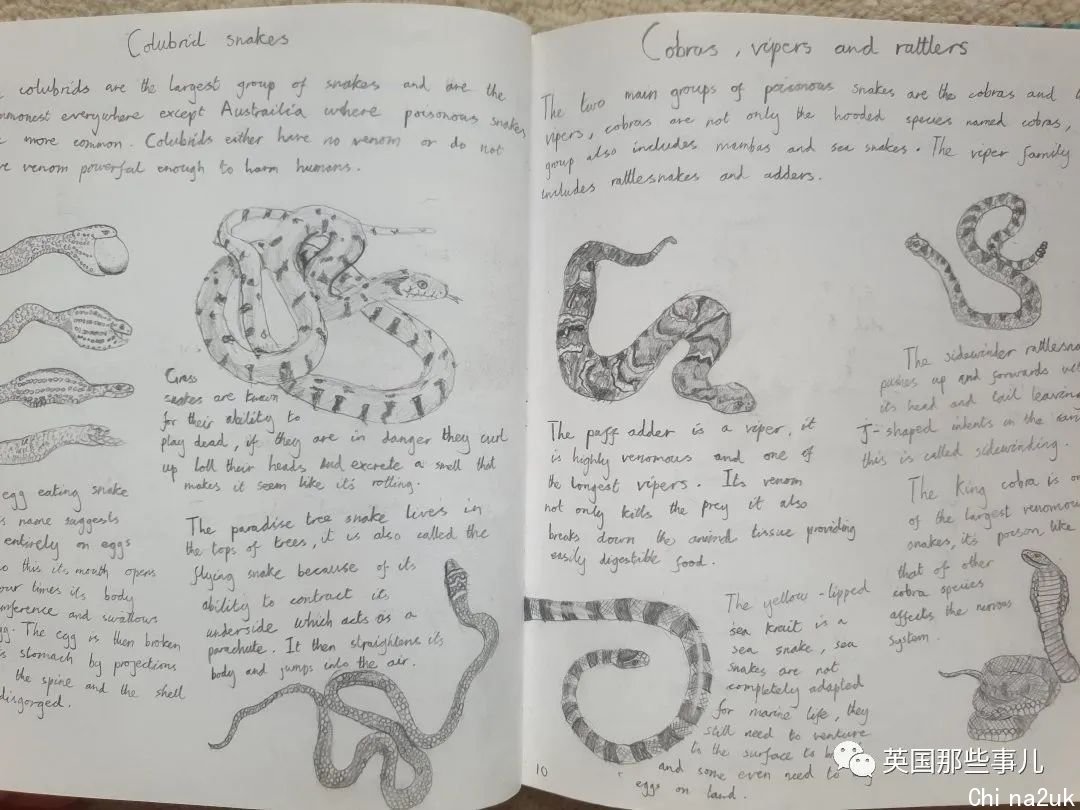 Colubrid snakes
colubrids are the largest group of snakes and are the
everywhere except Austrailia where poisonous snakes
more common. Colubrids either have no venom or do not
venom powerful enough to harm humans.
Grass
snakes are known
for their ability to
play dead, if they are in danger they curl
up loll their heads and excrete a smell that
makes it seem like it's rotting.
egg eating snake
name suggests
entirely on eggs
this its mouth opens
times its body
and swallows
The egg is then broken
stomach by projections
the spine and the shell
disgorged.
The paradise tree snake lives in
the tops of trees, it is also called the
flying snake because of its
ability to contract its
underside which acts as a
parachute. It then straightens its
body and jumps into the air.
Cobras, vipers and rattlers
The two main groups of poisonous snakes are the cobras and
vipers, cobras are not only the hooded species named cobras,
group also includes mambas and sea snakes. The viper family
includes rattlesnakes and adders.
The puff adder is a viper, it
is highly venomous and one of
the longest vipers. Its venom
not only kills the prey it also
breaks down the animal tissue providing
easily digestible food.
The sidewinder
pushes up and forwards
its head and tail leaving
J-shaped indents in the
this is called sidewinding.
The King cobra is
of the largest venomous
snakes, it's poison like
that of other
cobra species
affects the nervous
system.
The yellow-lipped
sea krait is a
sea snake, sea
snakes are not
completely adapted
for marine life, they
still need to venture
to the surface to
and some even need to
eggs on land.
10
英国那些事儿
Chi na2uk